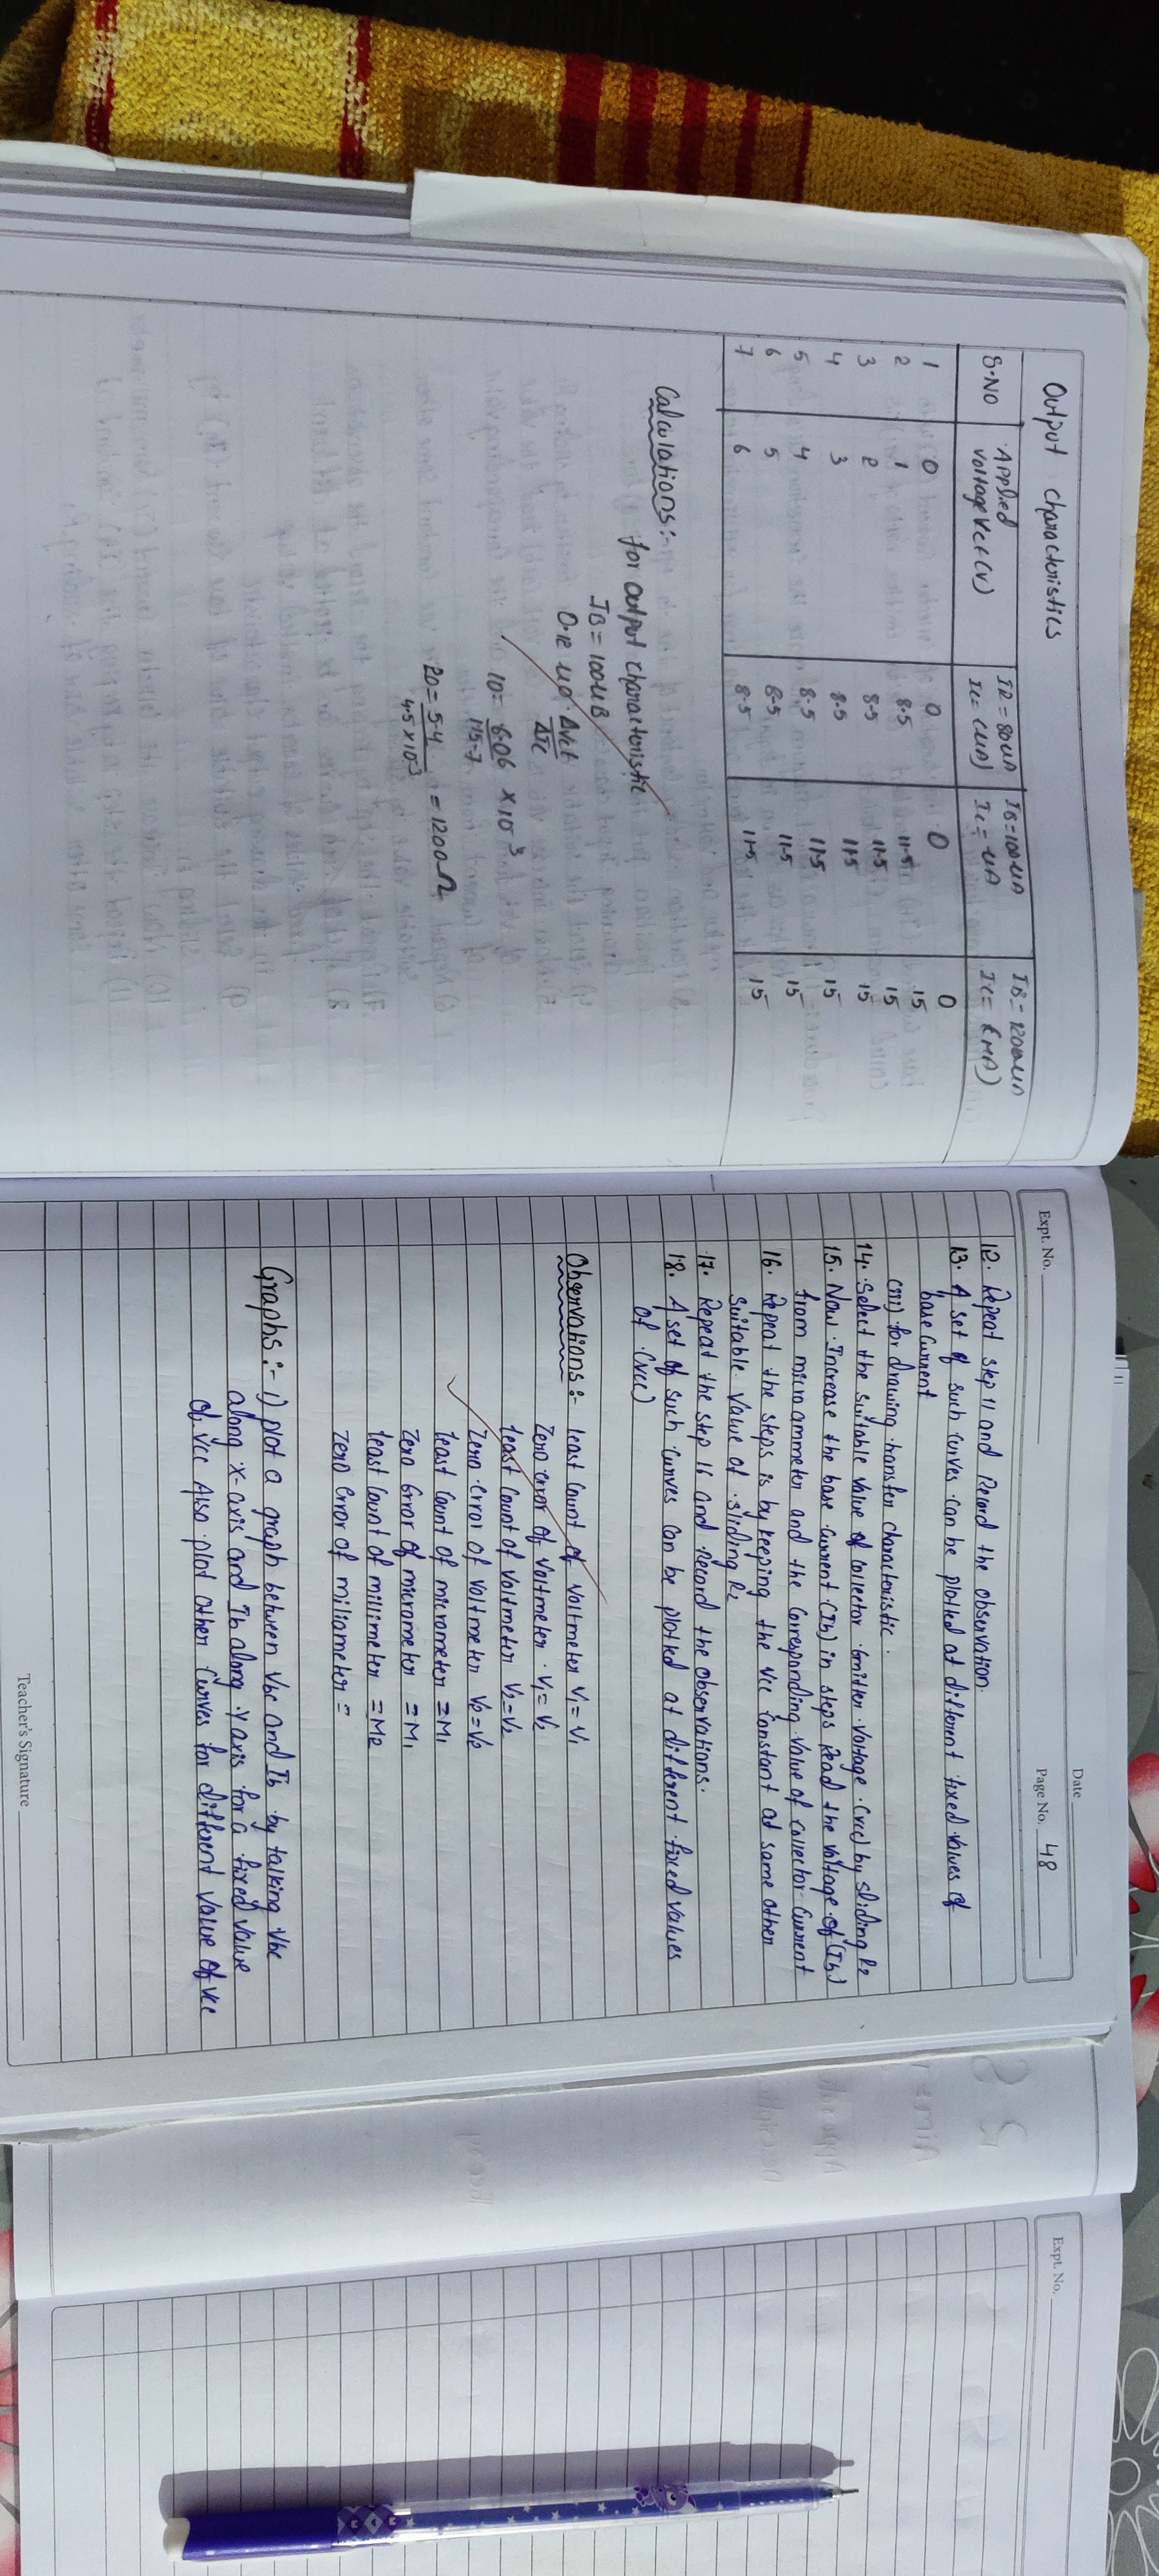 Output characteristics
S.NO Applied voltage Vce(V) IB = 80uA Ic = (uA) IB = 100uA Ic = uA IB = 120uA Ic = (MA)
1 0 0 0 0
2 1 8.5 11.5 15
3 2 8.5 11.5 15
4 3 8.5 11.5 15
5 4 8.5 11.5 15
6 5 8.5 11.5 15
7 6 8.5 11.5 15
Calculations:-
for output characteristic
IB = 100uB
ΔVce
ΔIc
10 = 6.06 × 10³
20 = 5-4 = 1200Ω
4.5 × 10⁻³
Expt. No.
Date
Page No. 48
12. Repeat step 11 and Record the observation.
13. A set of such curves can be plotted at different fixed values of
base current
(III) for drawing transfer characteristic.
14. Select the suitable value of collector emitter voltage (vce) by sliding R2
15. Now Increase the base current (Ib) in steps Read the voltage of (Ib)
from micro ammeter and the corresponding value of collector current
16. Repeat the steps is by keeping the vcc constant at same other
suitable value of sliding R2
17. Repeat the step 16 and record the observations.
18. A set of such curves can be plotted at different fixed values
of (vcc)
Observations:- least count of voltmeter v1 = v1
Zero error of voltmeter v1 = v2
least count of voltmeter v2 = v2
Zero error of voltmeter v2 = v2
least count of micrometer = M1
Zero error of micrometer = M1
least count of millimeter = M2
Zero error of miliameter =
Graphs:- 1) plot a graph between Vbe and Ib by talking Vbe
along x-axis and Ib along Y axis for a fixed value
of vcc Also plot other curves for different value of vcc
Teacher's Signature
Expt. No.